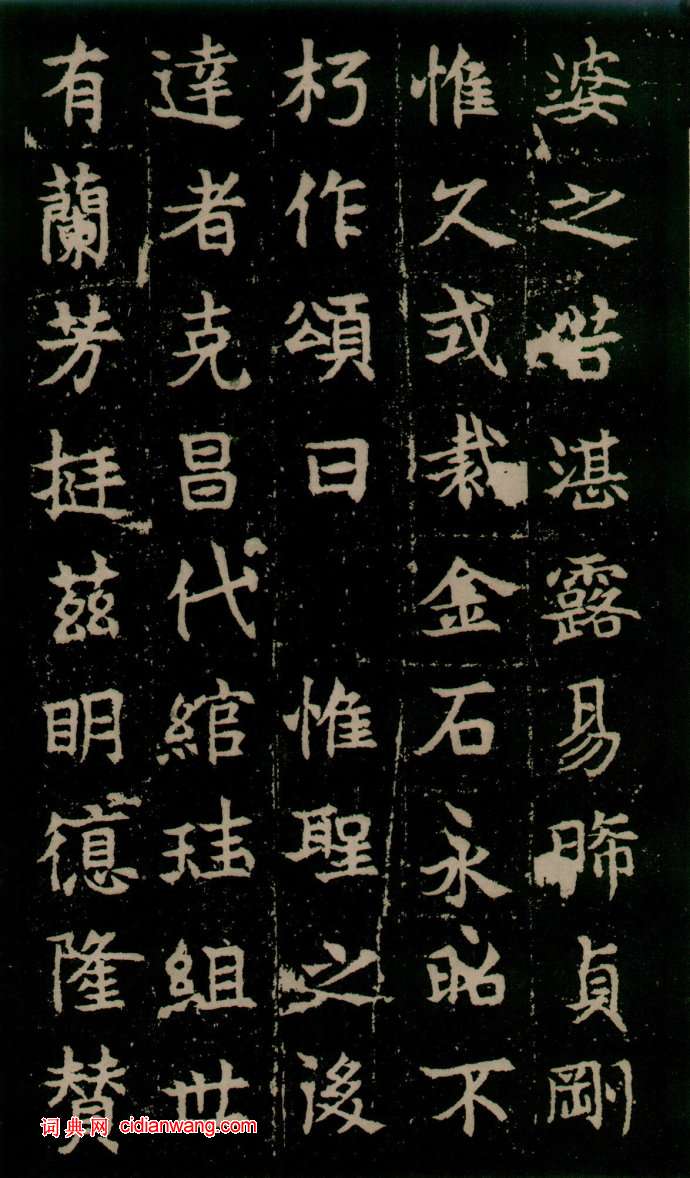 婆之晧湛露易晞貞剛
惟久或裁金石永昭不
朽作頌曰 惟聖之後
達者克昌代綰珪組世
有蘭芳挺茲明德隆贊
词典网 cidianwang.com